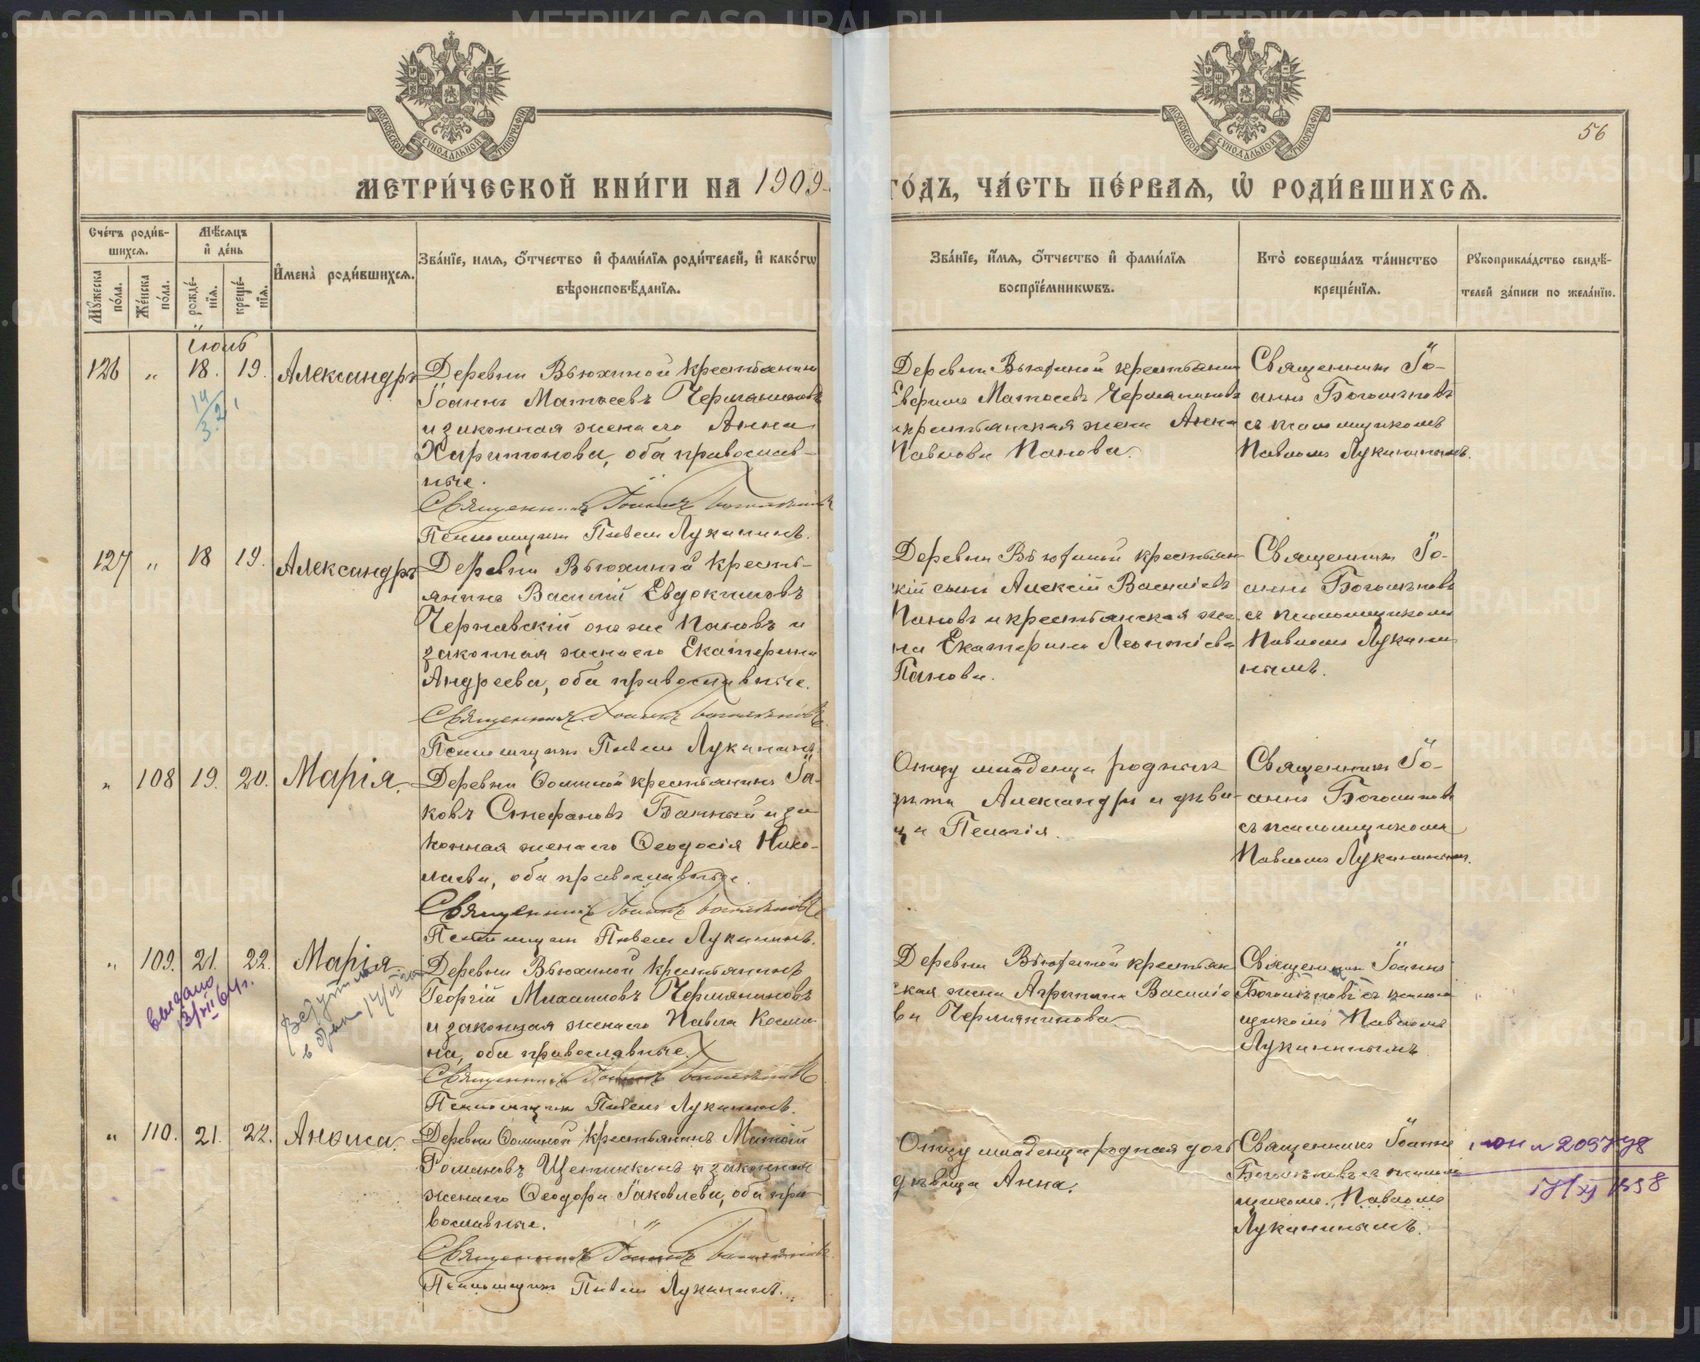 МЕТРИ́ЧЕСКОЙ КНИ́ГИ НА 1909
ГО́ДЪ, ЧА́СТЬ ПЕ́РВАѦ, Ѡ РОДИ́ВШИХСѦ.
56
МОСКОВСКОЙ СѴНОДАЛЬНОЙ ТИПОГРАФІИ
МОСКОВСКОЙ СѴНОДАЛЬНОЙ ТИПОГРАФІИ
Сче́тъ роди́в-
шихсѧ.
Мѣ́сѧцъ
и҆ де́нь
Мꙋ́жеска по́ла.
Же́нска по́ла.
рожде́-нїѧ.
креще́-нїѧ.
И҆мена̀ роди́вшихсѧ.
Зва́нїе, имѧ, о҆́тчество и҆ фами́лїѧ роди́телей, и҆ како́гѡ
вѣроисповѣ́данїѧ.
Зва́нїе, и҆́мѧ, о҆́тчество и҆ фами́лїѧ
воспрїе́мникѡвъ.
Кто̀ соверша́лъ та́инство
креще́нїѧ.
Рꙋкоприкла́дство свидѣ́-
телей за́писи по жела́нїю.
Іюль
126 " 18. 19. Александръ
Деревни Вьюхиной крестьянинъ
Іоаннъ Матѳеевъ Чермяниновъ
и законная жена его Анна
Харитонова, оба православ-
ные.
Священникъ Іоаннъ Богомѣновъ
Псаломщикъ Павелъ Лукининъ.
Деревни Вьюхиной крестьянинъ
Евфимъ Матѳеевъ Чермяниновъ
и крестьянская жена Анна
Павлова Панова.
Священникъ Іо-
аннъ
съ псаломщикомъ
Павломъ Лукининымъ.
127 " 18 19. Александръ
Деревни Вьюхиной кресть-
янинъ Василій Евдокимовъ
Чернавскій онъ же Пановъ и
законная жена его Екатерина
Андреева, оба православные.
Священникъ Іоаннъ
Псаломщикъ Павелъ Лукининъ.
Деревни Вьюхиной крестьян-
скій сынъ Алексій Васильевъ
Пановъ и крестьянская же-
на Екатерина Леонтіева
Панова.
Священникъ Іо-
аннъ
съ псаломщикомъ
Павломъ Лукини-
нымъ.
" 108 19. 20. Марія.
Деревни Ѳоминой крестьянинъ Іа-
ковъ Стефановъ Банный и за-
конная жена его Ѳеодосія Нико-
лаева, оба православные.
Священникъ Іоаннъ
Псаломщикъ Павелъ Лукининъ.
Отцу младенца родныя
дѣти Александръ и дѣви-
ца Пелагія.
Священникъ Іо-
аннъ
съ псаломщикомъ
Павломъ Лукининымъ.
" 109. 21. 22. Марія
Деревни Вьюхиной крестьянинъ
Георгій Михаиловъ Чермяниновъ
и законная жена его Павла Косми-
на, оба православные.
Священникъ Іоаннъ
Псаломщикъ Павелъ Лукининъ.
Деревни Вьюхиной крестьян-
ская жена Агрипина Василіе-
ва Чермянинова.
Священникъ Іоаннъ
съ псалом-
щикомъ Павломъ
Лукининымъ.
выдано
" 110. 21. 22. Анѳиса.
Деревни Ѳоминой крестьянинъ Матѳій
Романовъ Щетинкинъ и законная
жена его Ѳеодора Іаковлева, оба пра-
вославные.
Священникъ Іоаннъ
Псаломщикъ Павелъ Лукининъ.
Отцу младенца родная дочь
дѣвица Анна.
Священникъ Іоаннъ
съ псалом-
щикомъ Павломъ
Лукининымъ.